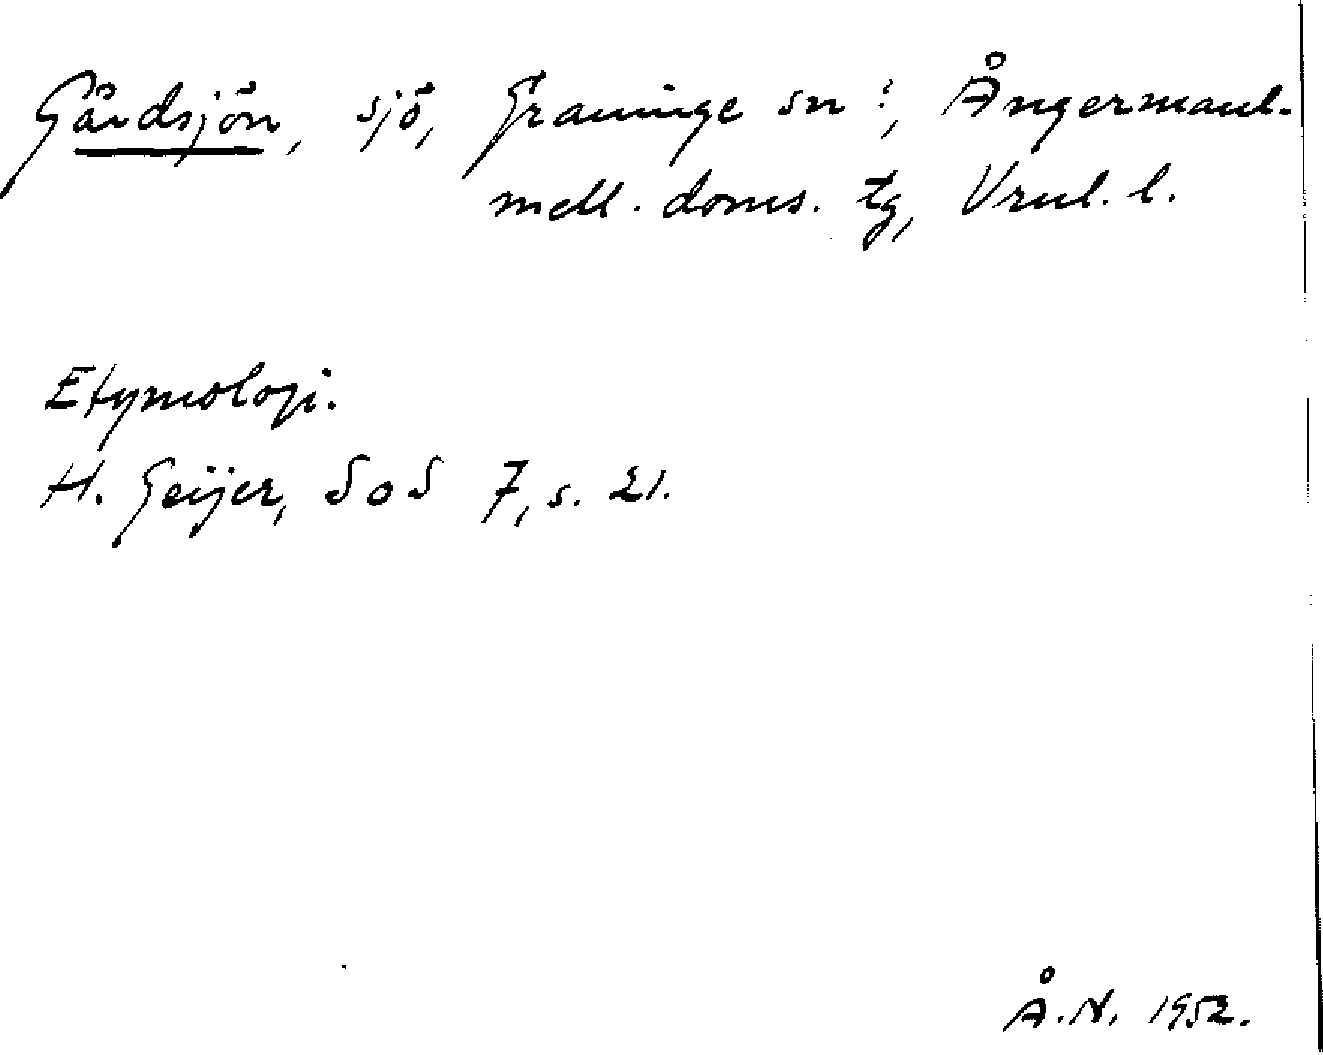 Gårdsjön, sjö, Graninge sn?, Ångermanl.
mell. doms. tg, Vnrl. l.
Etymologi.
H. Geijer, SoS 7, s. 21.
Å.N. 1952.